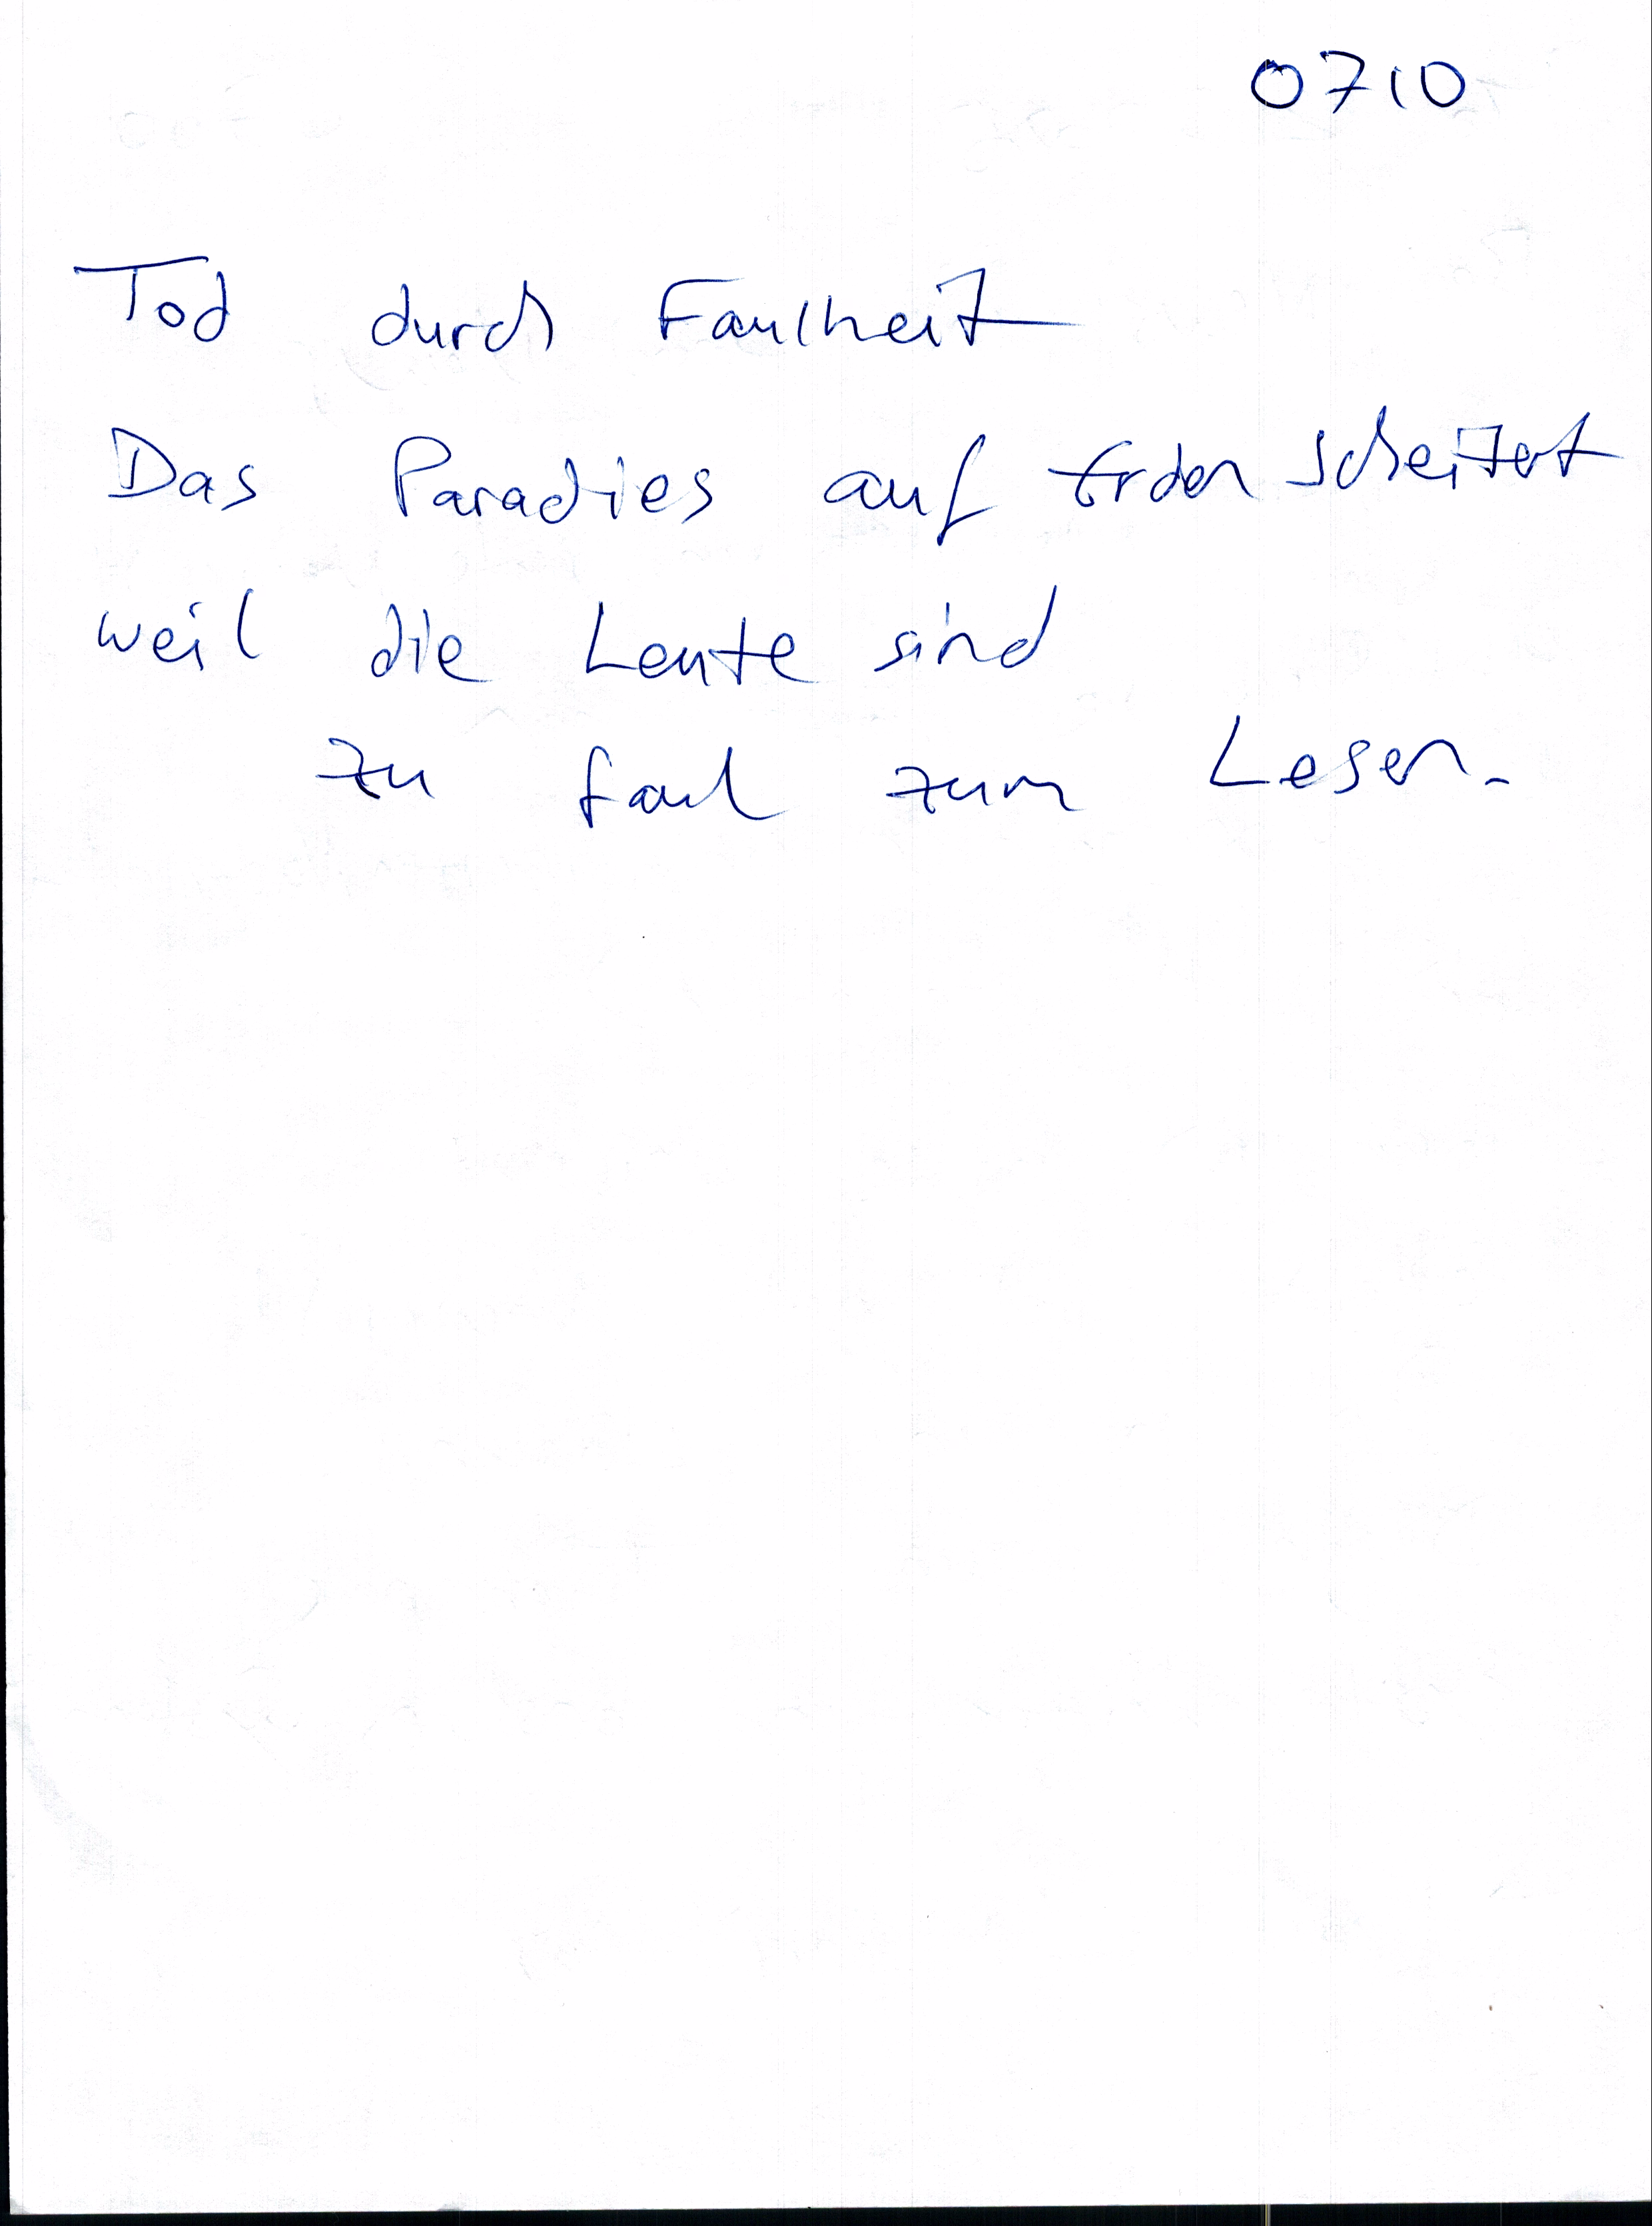 0710
Tod durch Faulheit
Das Paradies auf Erden scheitert
weil die Leute sind
zu faul zum Lesen.